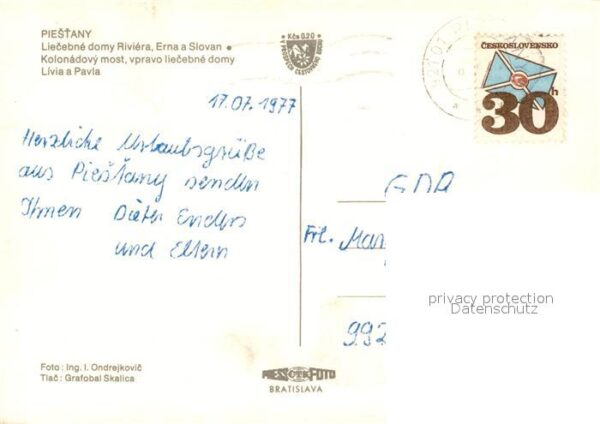 PIEŠŤANY
Liečebné domy Riviéra, Erna a Slovan •
Kolonádový most, vpravo liečebné domy
Lívia a Pavla
Kčs 0,20
ČESKOSLOVENSKO
30h
17.07.1977
Herzliche Urlaubsgrüße
aus Piešťany senden
Ihnen Dieter Enders
und Eltern
GDR
Frl. Mar
992
privacy protection
Datenschutz
Foto: Ing. I. Ondrejkovič
Tlač: Grafobal Skalica
FOTO
BRATISLAVA